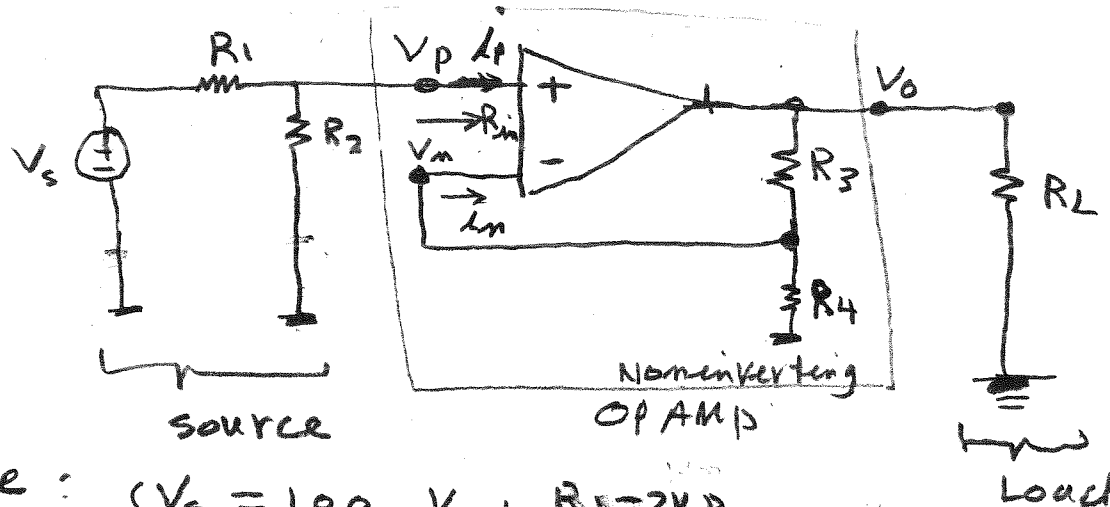 R1
Vp ip
+
Rin
Vn
-
in
Vo
R2
Vs
+
-
R3
RL
R4
Noninverting
OP AMP
source
Load
e : (Vs = 100 V, R1=2KΩ